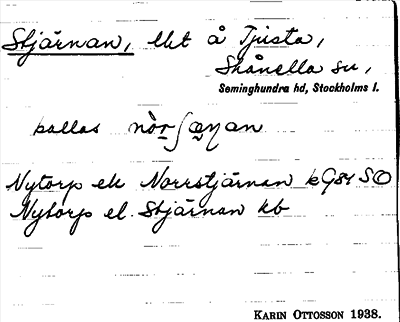 Stjärnan, lht å Tjusta,
Skånella sn,
Seminghundra hd, Stockholms l.
kallas
Nytorp el. Norrstjärnan k G84 SO
Nytorp el. Stjärnan kb
KARIN OTTOSSON 1938.